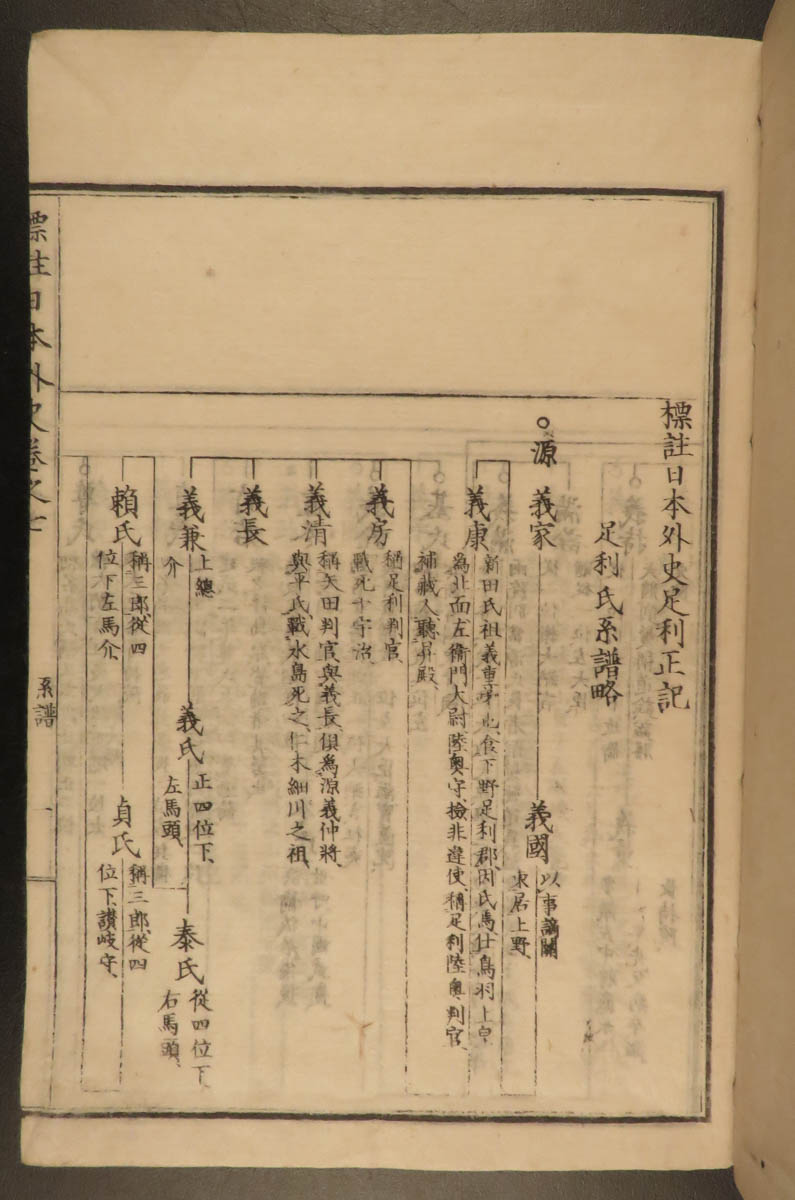 標註日本外史足利正記
足利氏系譜略
源
義家
義國
以事謫關
東居上野、
義康
新田氏祖義重弟也、食下野足利郡、因氏焉、仕鳥羽上皇
為北面左衞門大尉、陸奧守、檢非違使、稱足利陸奧判官、
補藏人、聽昇殿、
義房
稱足利判官、
戰死于宇治、
義清
稱矢田判官、與義長、俱為源義仲將、
與平氏、戰水島死之、仁木細川之祖、
義長
義兼
上總
介
義氏
正四位下、
左馬頭、
泰氏
從四位下、
右馬頭、
賴氏
稱三郎、從四
位下、左馬介、
貞氏
稱三郎、從四
位下、讃岐守、
標註日本外史卷之七
系譜
一